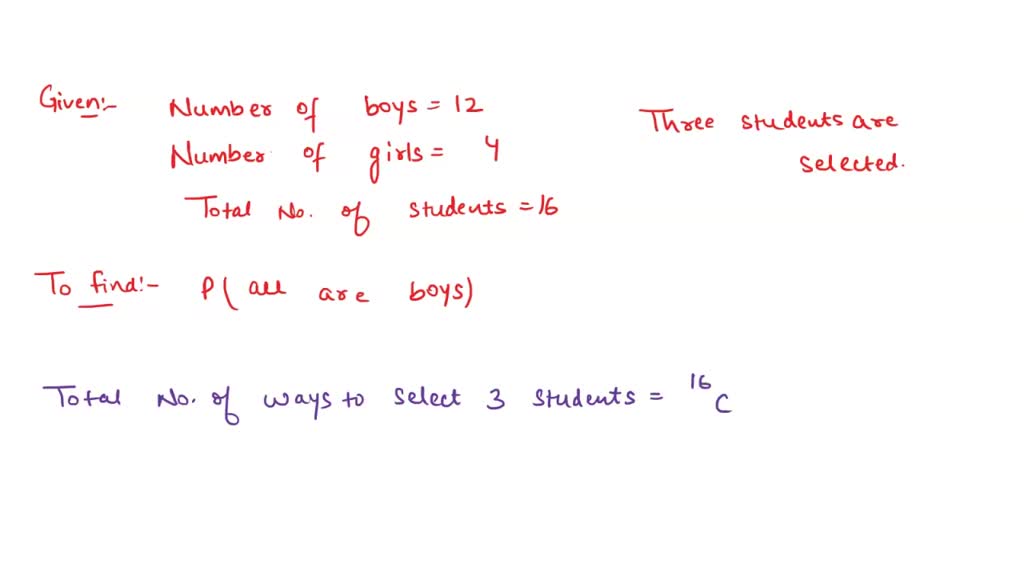 Given:- Number of boys = 12
Number of girls = 4
Total No. of students = 16
Three students are
selected.
To find:- P( all are boys)
Total No. of ways to select 3 students = 16 C